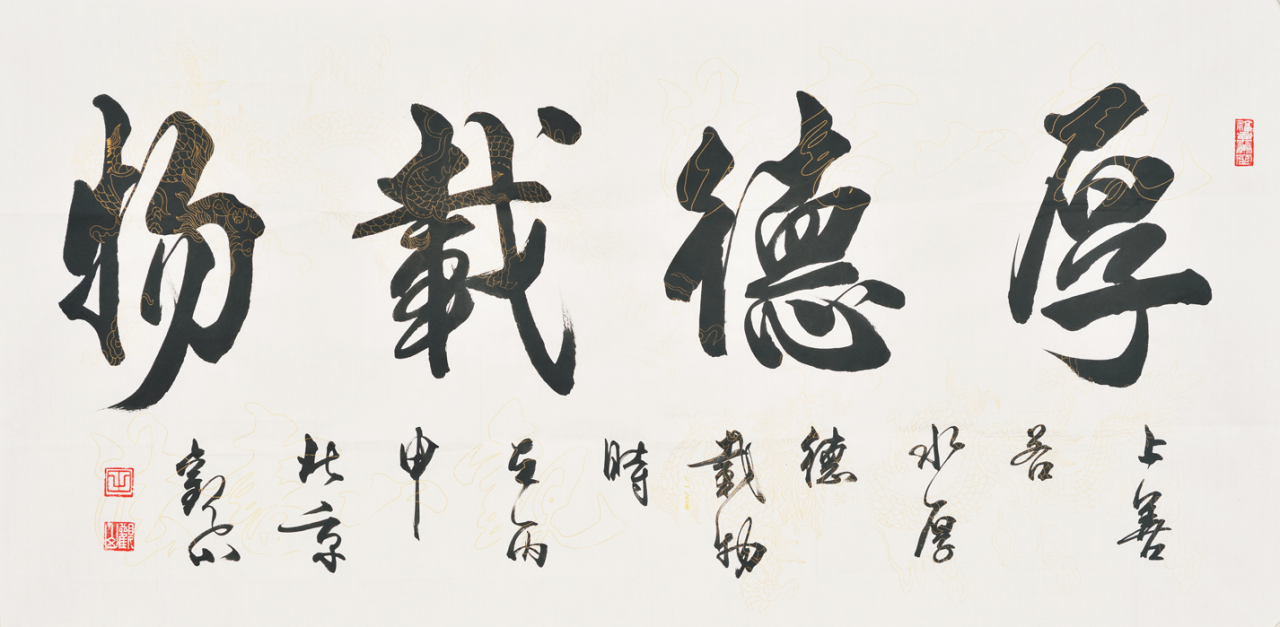 厚德載物
上善
若
水厚
德
載物
時
在丙
申
北京
觀山